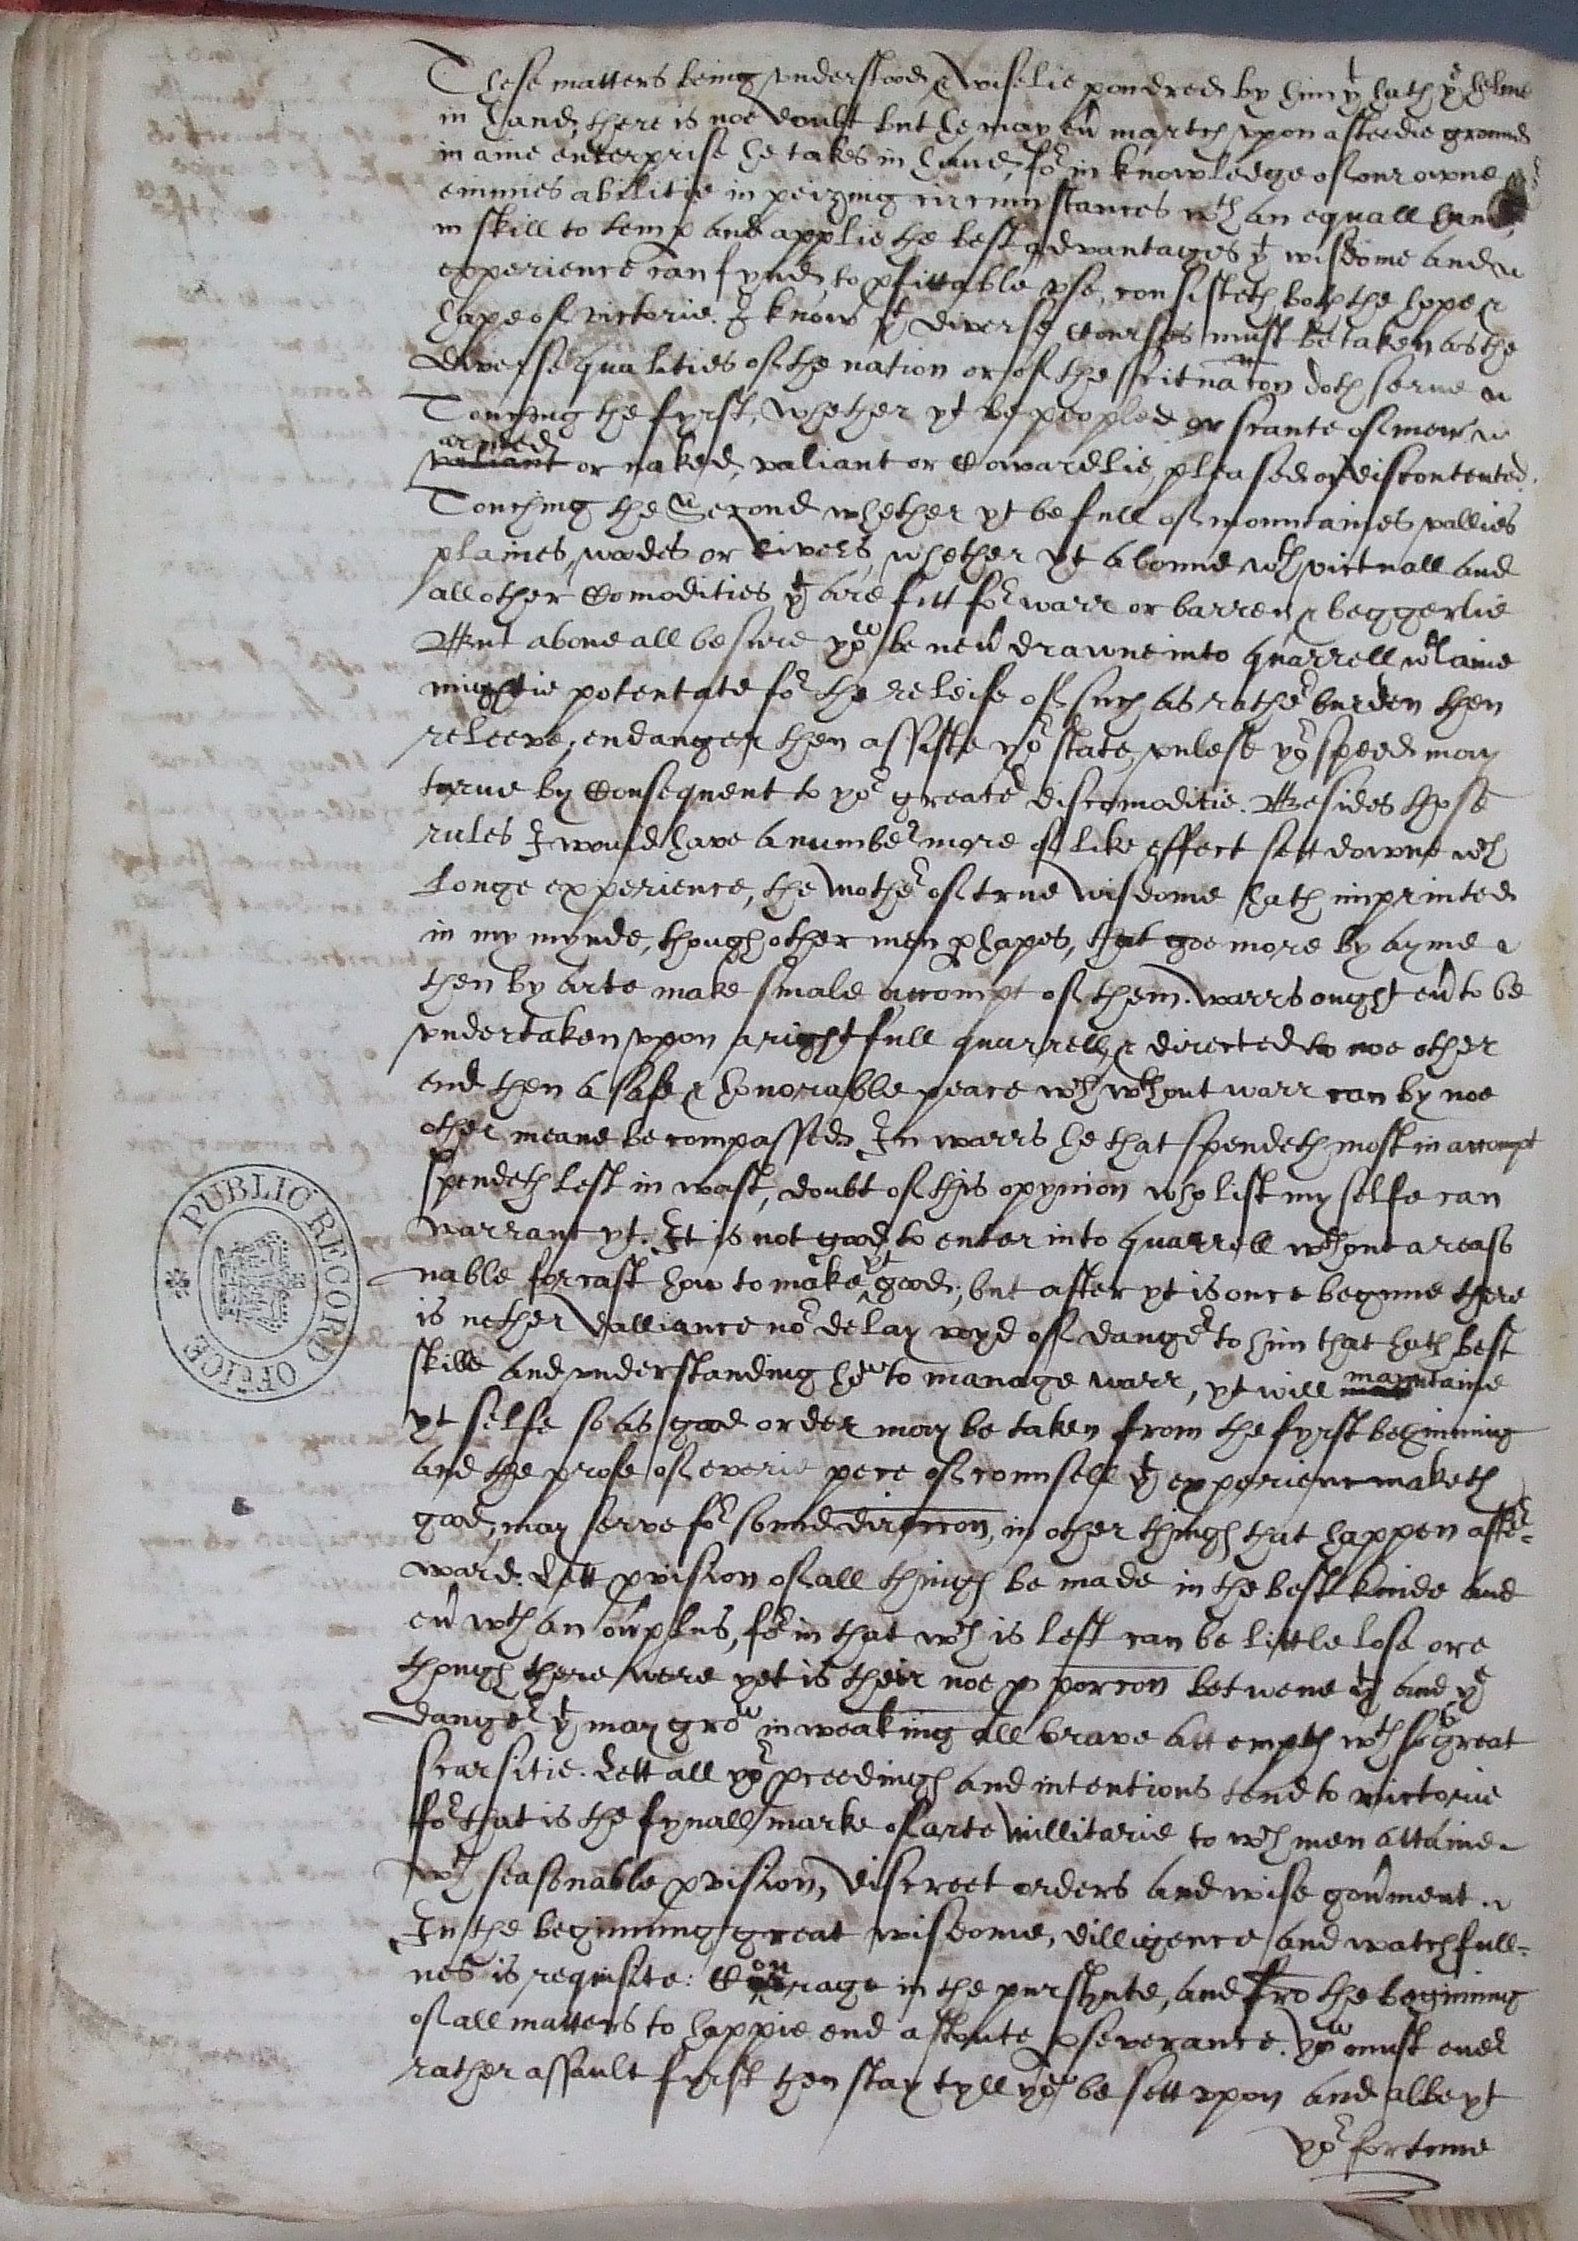 These matters being understood & wiselie pondred by him yt hath ye helme
in hand, there is noe doubt but he may eu martch upon a steedie ground
in anie enterprise he takes in hand, for in knowledge of our owne &
enimies abillitie in peizing circumstances wth an equall hand,
in skill to temp and applie the best advantages yt wisdome and
experience can fynd, to pfittable use, consisteth both the hope &
hape of victorie. I know yt diverse courses must be taken as the
diverse qualities of the nation or of the scituacon doth serve
Touching the fyrst, whether yt be peopled or scante of men
armed
valiant or naked, valiant or cowardlie, pleased or discontented.
Touching the Second whether yt be full of mountaines vallies
plaines, wodes or rivers, whether yt abound wth victuall and
all other comodities yt are fitt for warr or barren & beggerlie
But above all be sure you be neu drawne into quarrell wth anie
mightie potentate for the releife of such as rather burden then
releeve, endanger then assiste yor state, unlesse yor speed may
turne by consequent to yor greater discomoditie. Besides these
rules I would have a number more of like effect sett downe wch
longe experience, the mother of true wisdome hath imprinted
in my mynde, though other men phapes, that goe more by ayme
then by arte make smale accompt of them. Warrs ought eu to be
undertaken upon a rightfull quarrell, & directed to noe other
end then a safe & honorable peace wch wthout warr can by noe
other meane be compassed. In warrs he that spendeth most in accompt
spendeth lest in wast, doubt of this opynion who list my selfe can
warrant yt. It is not good to enter into quarrell wthout a reaso
nable forcast how to make yt good, but after yt is once begune there
is nether dalliance nor delay voyd of danger to him that hath best
skille and understanding how to manage warr, yt will mayntaine
yt selfe so as good order may be taken from the fyrst beginning
and the profe of everie pece of counsell yt experience maketh
good, may serve for sound direccon, in other things that happen after-
ward. Lett pvision of all things be made in the best kinde and
eu wth an ouplus, for in that wch is left can be little lose ore
though there were yet is their noe pporcon betwene yt and ye
danger yt may grow in weaking all brave attempts wth so great
scarsitie. Lett all yor pceedings and intentions tend to victorie
for that is the fynall marke of arte millitarie to wch men attaine
wth seasonable pvision, discreet orders and wise goument.
In the beginning great wisdome, dilligence and watchfull-
nes is requisite: Courage in the pursute, and fro the begining
of all matters to happie end a stoute pseverance. You must ever
rather assault fyrst then stay tyll you be sett upon and albeyt
yor fortune
PUBLIC RECORD OFFICE